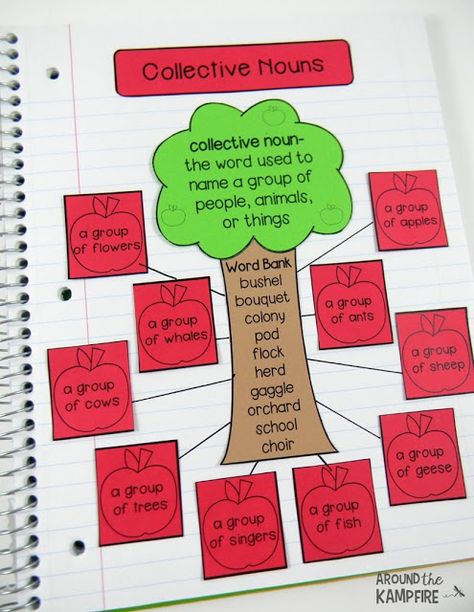 Collective Nouns
collective noun-
the word used to
name a group of
people, animals,
or things
a group
of flowers
a group
of apples
Word Bank
bushel
bouquet
colony
pod
flock
herd
gaggle
orchard
school
choir
a group
of whales
a group
of ants
a group
of cows
a group
of sheep
a group
of trees
a group
of geese
a group
of singers
a group
of fish
AROUND THE
KAMPFIRE